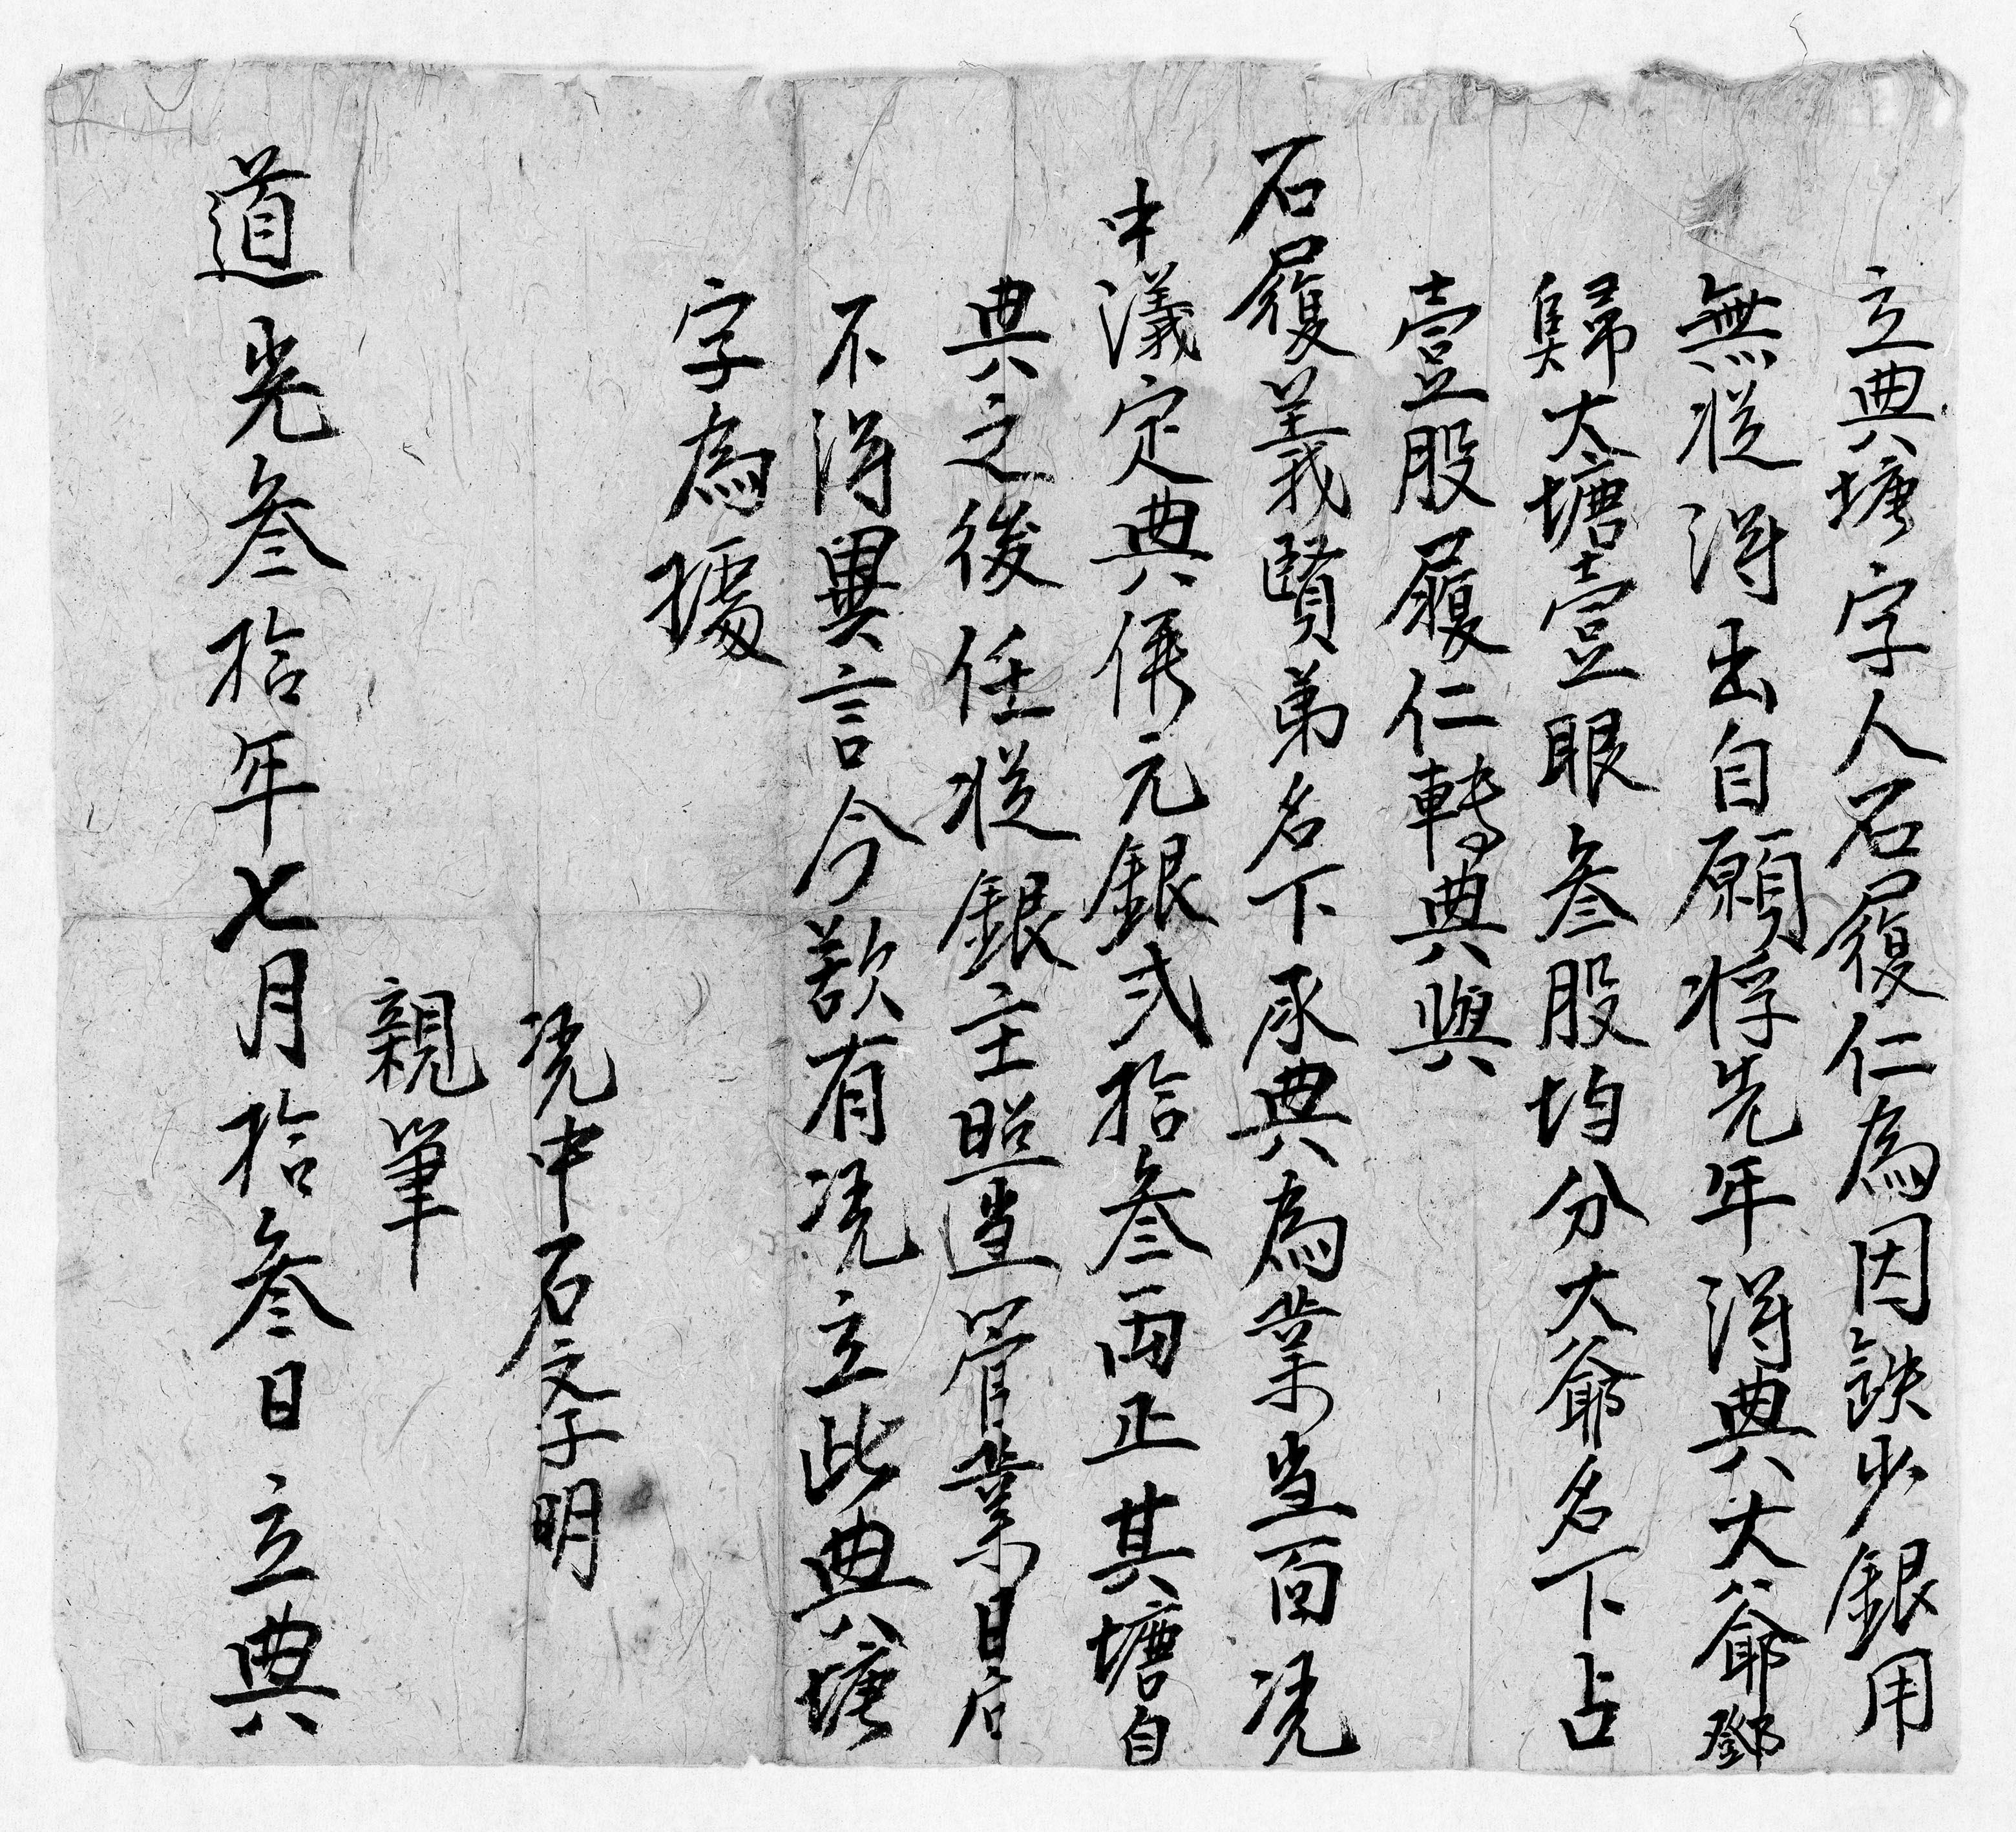 立典塘字人石履仁為因缺少銀用
無從得出自願將先年得典大爺鄧
歸大塘壹眼叁股均分大爺名下占
壹股履仁轉典與
石履義賢弟名下承典為業当面凭
中議定典價元銀弍拾叁両正其塘自
典之後任從銀主照道管業日后
不得異言今欲有凭立此典塘
字為據
凭中石文子明
親筆
道光叁拾年七月拾叁日立典